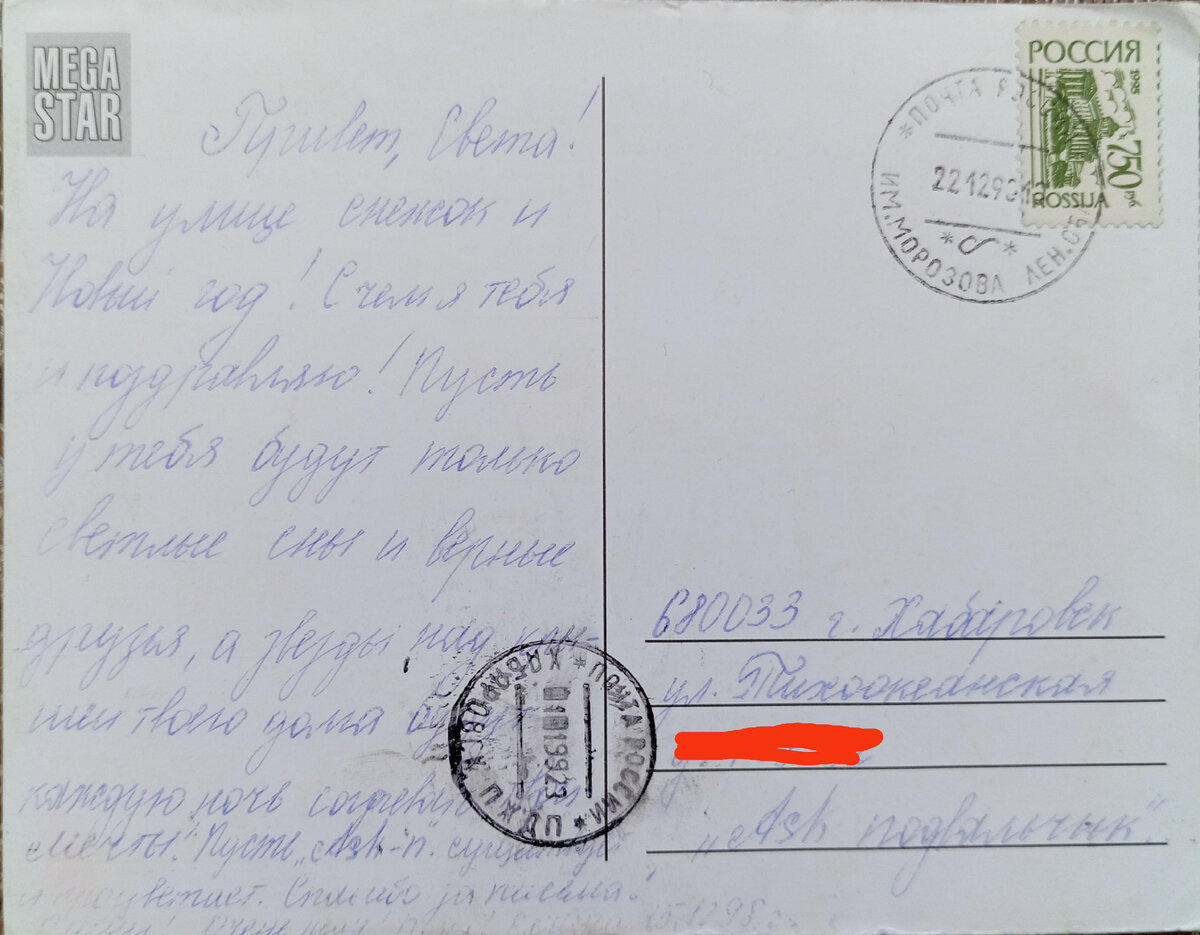 MEGA
STAR
Привет, Света!
На улице снежок и
Новый год! С чем я тебя
и поздравляю! Пусть
у тебя будут только
светлые сны и верные
друзья, а звезды над кры-
шей твоего дома
каждую ночь
мечты. Пусть „Ask-п"
и процветает. Спасибо за письма!
15.12.98 г.
РОССИЯ
1995
750 руб.
ROSSIJA
*ПОЧТА
22 12 98
* б *
ИМ.МОРОЗОВА ЛЕН.ОБ
ПОЧТА РОССИИ * ХАБАРОВСК
010199 23
680033 г. Хабаровск
ул. Тихоокеанская
„Ask подвальчык".